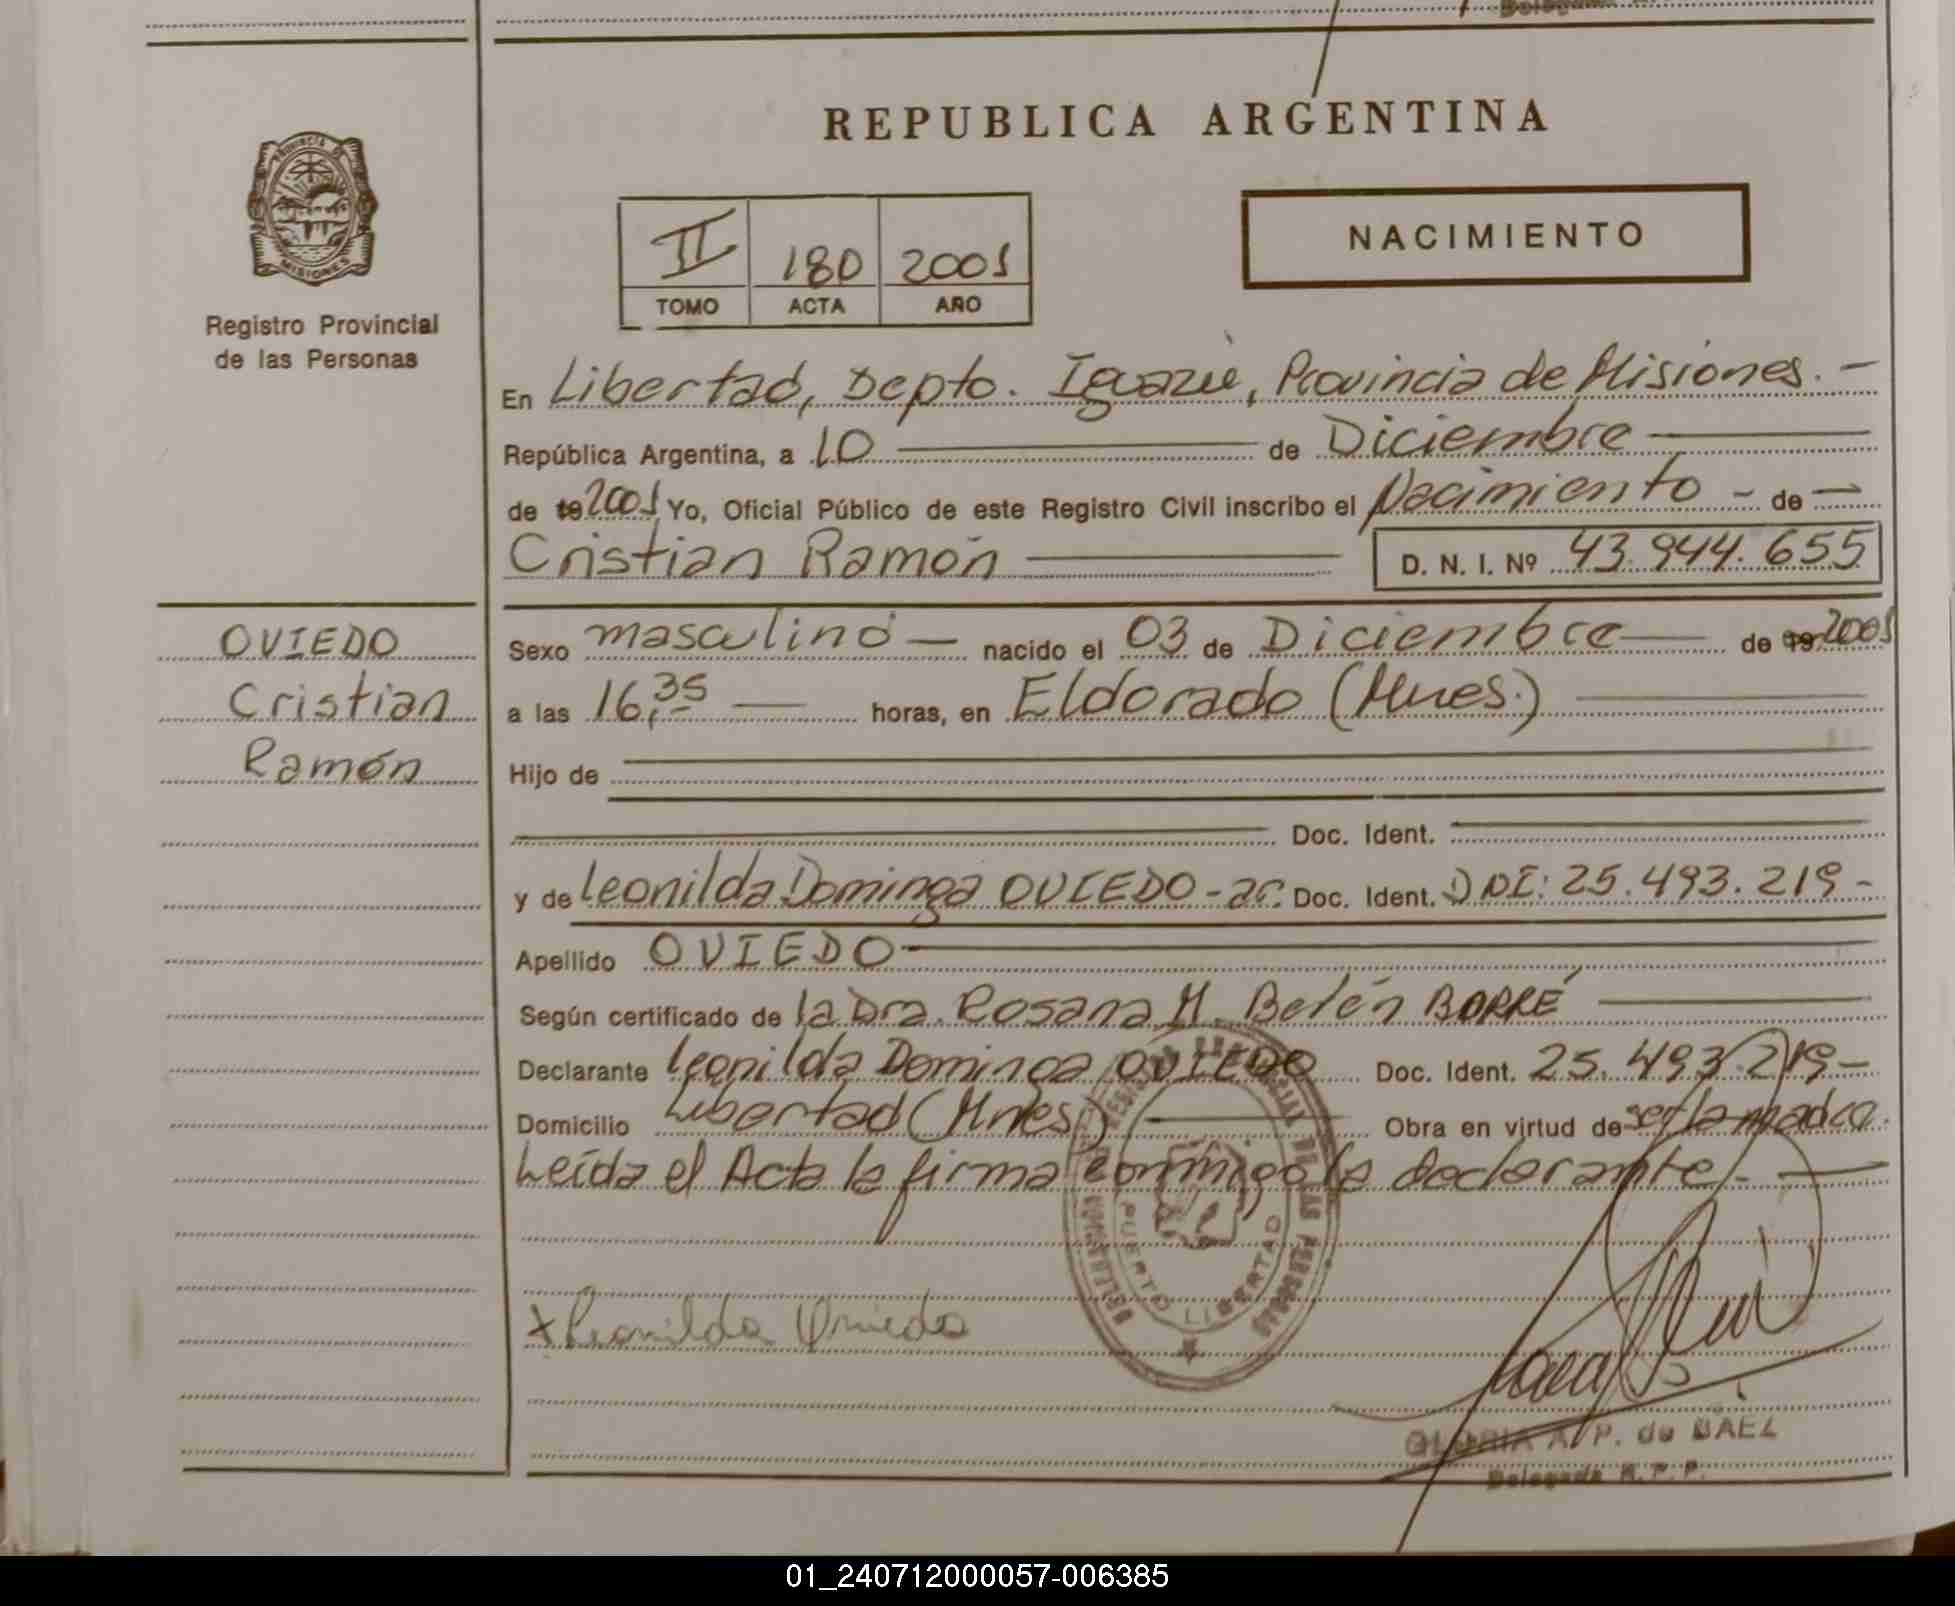 REPUBLICA ARGENTINA
PROVINCIA DE
MISIONES
Registro Provincial
de las Personas
II 180 2001
TOMO ACTA AÑO
NACIMIENTO
En Libertad, Depto. Iguazú, Provincia de Misiones. -
República Argentina, a 10 de Diciembre
de 19 2001 Yo, Oficial Público de este Registro Civil inscribo el Nacimiento - de -
Cristian Ramón D. N. I. Nº 43.944.655
OVIEDO
Cristian
Ramón
Sexo masculino - nacido el 03 de Diciembre de 19 2001
a las 16,35 horas, en Eldorado (Mnes.)
Hijo de
Doc. Ident.
y de Leonilda Dominga OVIEDO - ac. Doc. Ident. DNI: 25.493.219 -
Apellido OVIEDO
Según certificado de la Dra. Rosana M. Belén BORRÉ
Declarante Leonilda Dominga OVIEDO Doc. Ident. 25.493.219 -
Domicilio Libertad (Mnes) Obra en virtud de ser la madre.
Leída el Acta la firma conmigo la declarante. -
PUERTO LIBERTAD
x Leonilda Oviedo
GLORIA A. P. de BAEL
Delegada R. P. P.
01_240712000057-006385